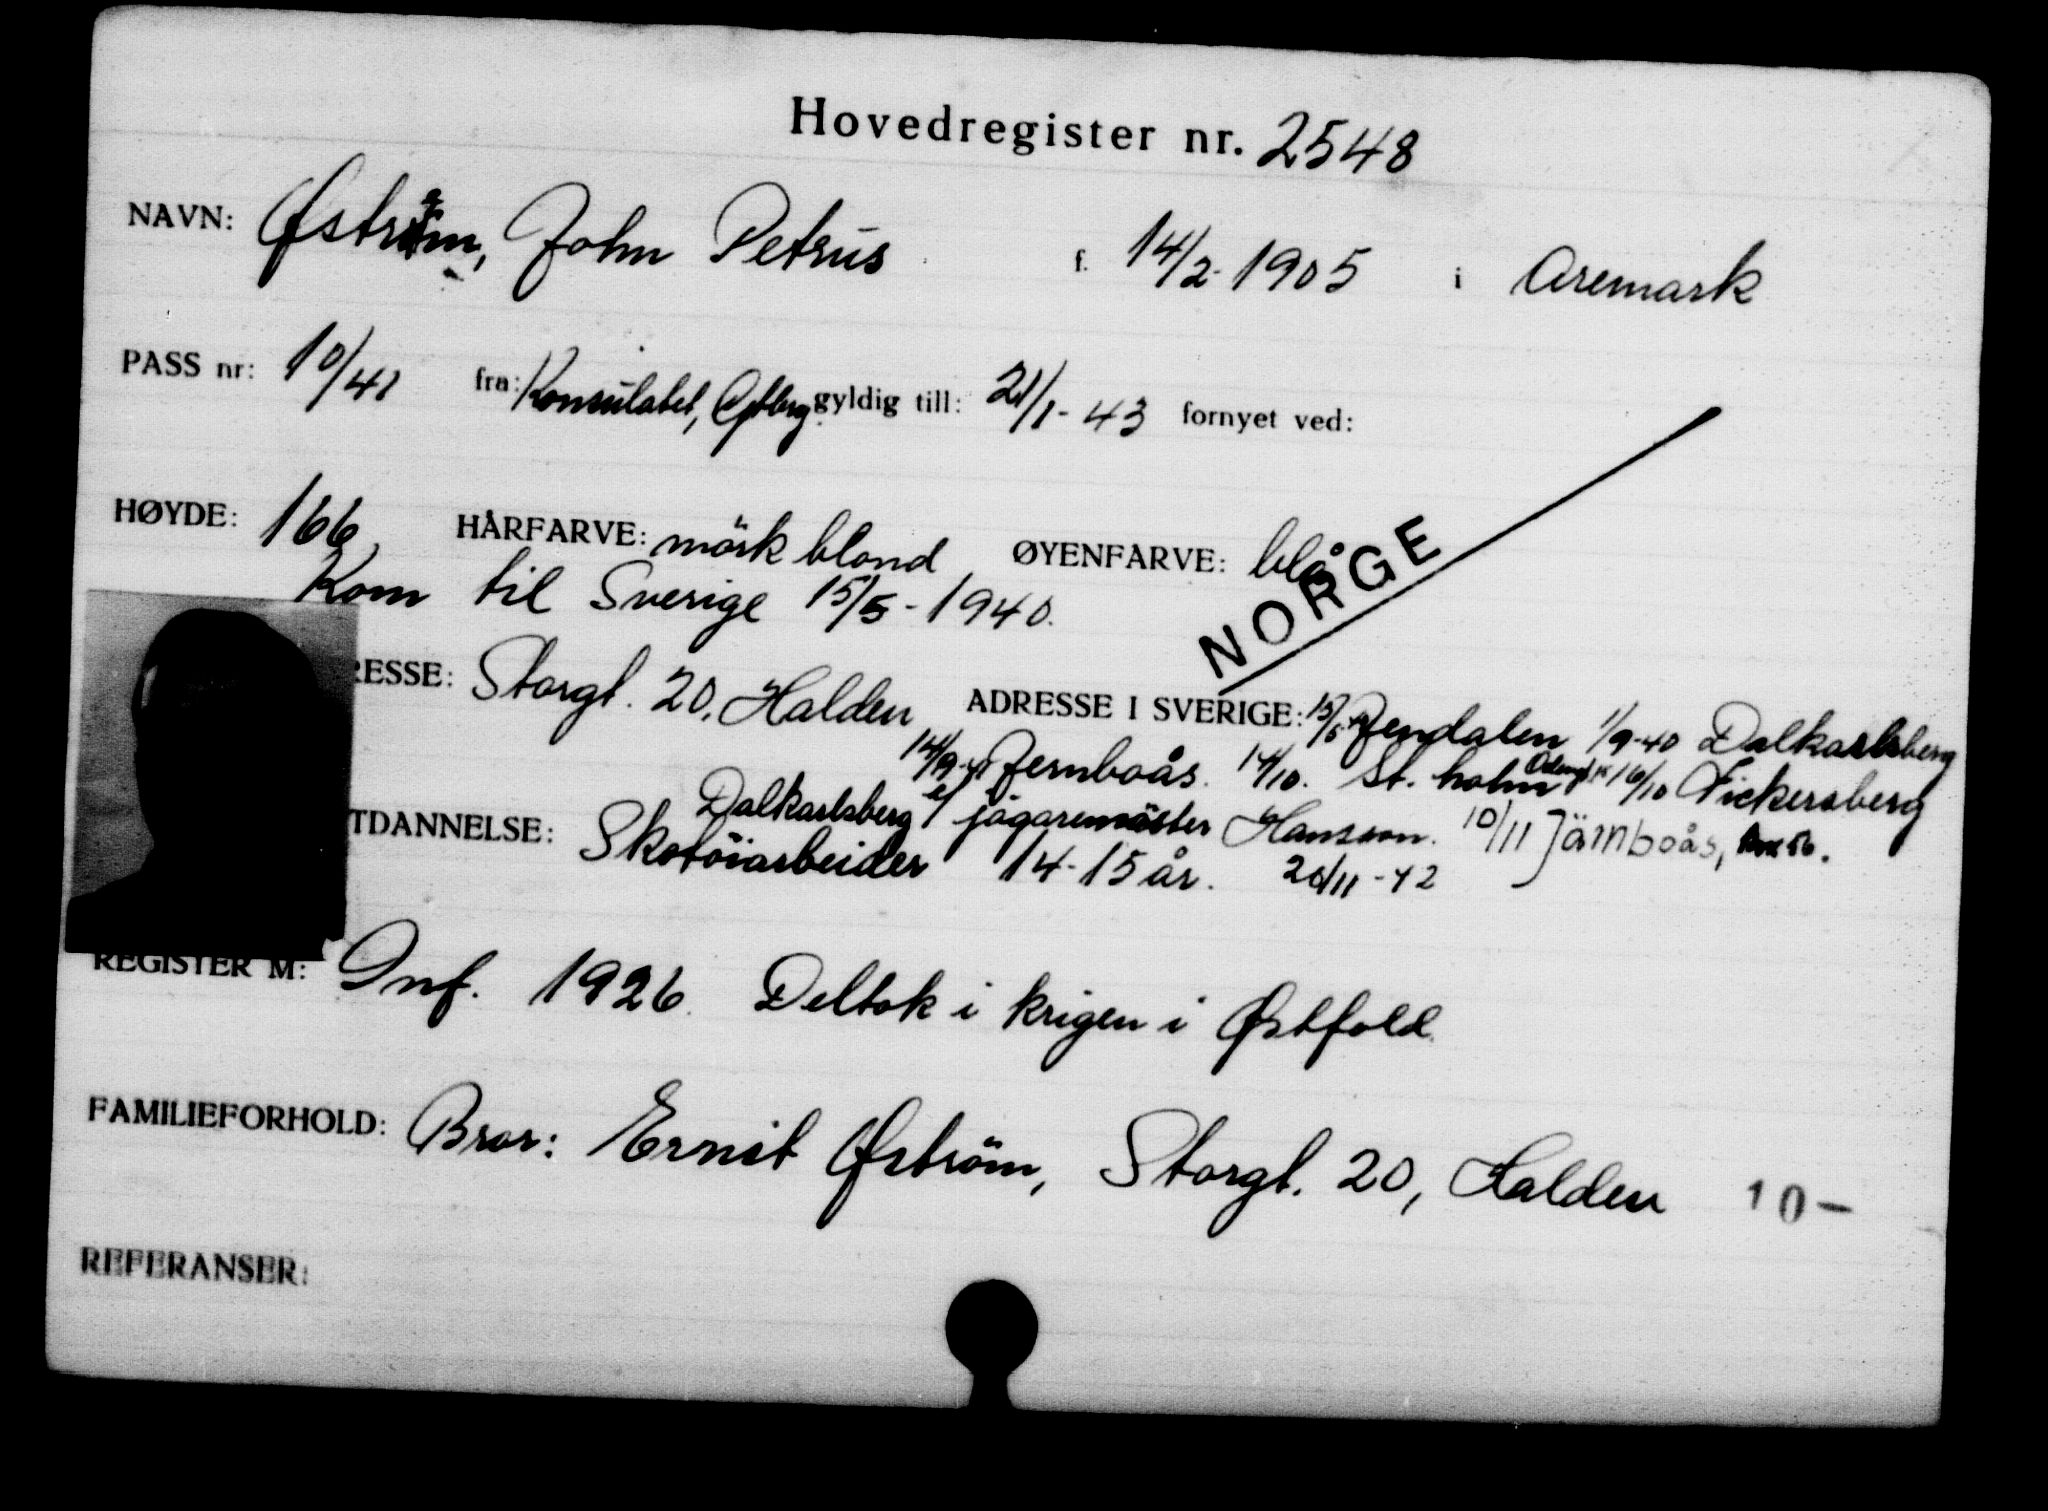 Hovedregister nr. 2548
NAVN: Øström, John Petrus f. 14/2-1905 i Aremark
PASS nr: 10/41 fra: Konsulatet, Gtbrg. gyldig till: 21/1-43 fornyet ved:
HØYDE: 166 HÅRFARVE: mörk blond ØYENFARVE: blå
NORGE
Kom til Sverige 15/5-1940.
RESSE: Storgt. 20, Halden ADRESSE I SVERIGE: 15/5 1/9-40 Dalkarlsberg
14/9-41 Jernboås. 14/10. St. holm 16/10 Vickersberg
Dalkarlsberg c/ jägaremäster Hansson. 10/11 Järnboås,
TDANNELSE: Skotöiarbeider 14-15 år. 20/11-42
REGISTER M: Inf. 1926. Deltok i krigen i Østfold.
FAMILIEFORHOLD: Bror: Ernst Øström, Storgt. 20, Halden 10-
REFERANSER: